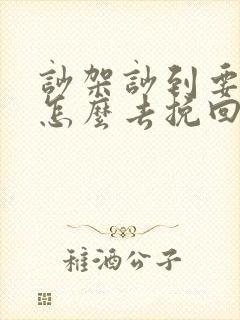 訜架訜到要
怎麼去挽回
稚酒公子